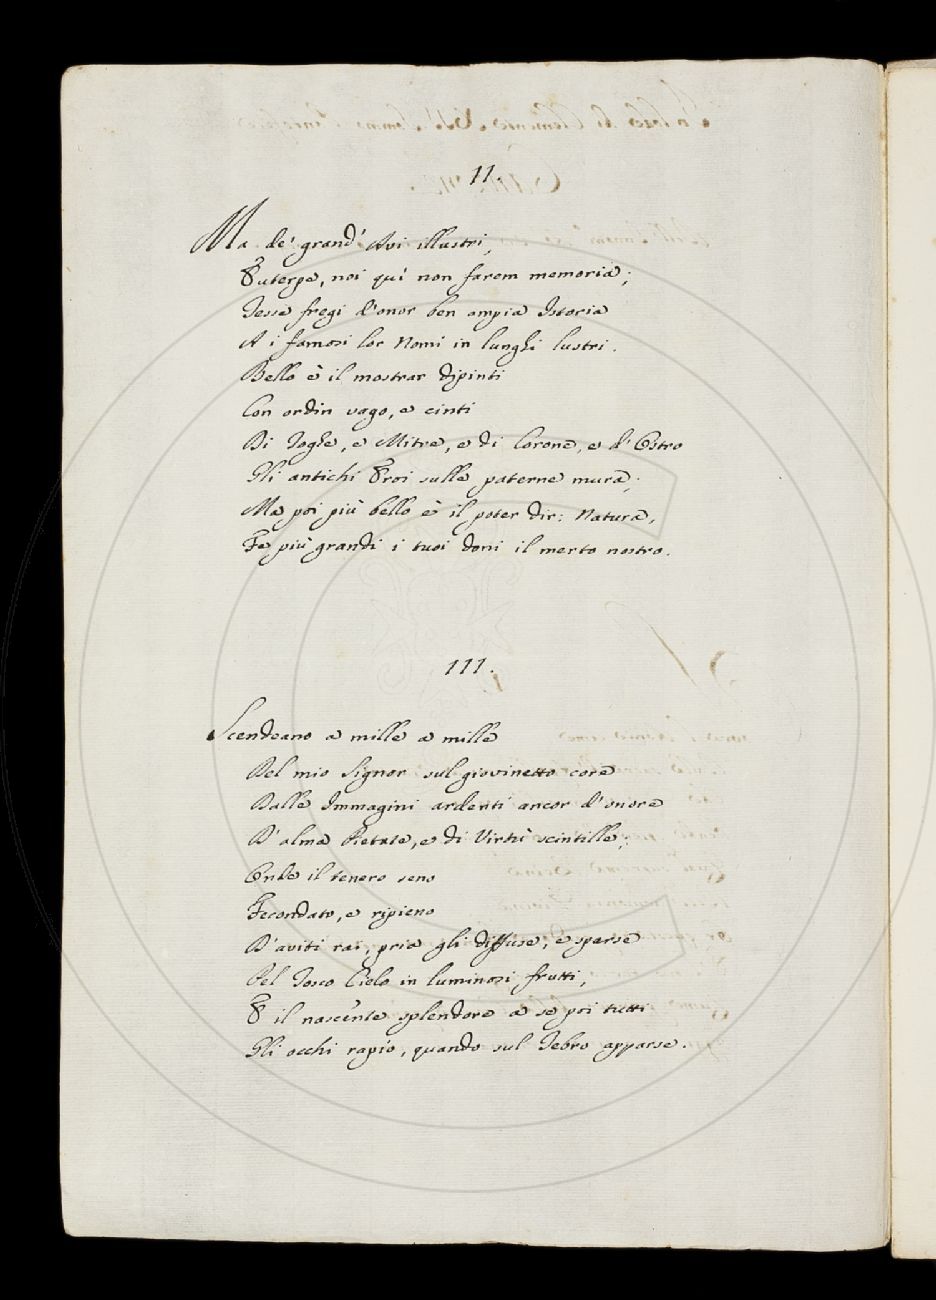 II.
Ma de' grand' Avi illustri,
Euterpe, noi quì non farem memoria;
Tesse fregi d'onor ben ampia Istoria
A i famosi lor Nomi in lunghi lustri.
Bello è il mostrar dipinti
Con ordin vago, e cinti
Di Toghe, e Mitre, e di Corone, e d'Ostro
Gli antichi Eroi sulle paterne mura;
Ma poi più bello è il poter dir: Natura,
Fe più grandi i tuoi doni il merto nostro.
III.
Scendeano a mille a mille
Del mio Signor sul giovinetto core
Dalle Immagini ardenti ancor d'onore
D'alma Pietate, e di Virtù scintille;
Onde il tenero seno
Fecondato, e ripieno
D'aviti rai, pria gli diffuse, e sparse
Pel Tosco Cielo in luminosi frutti,
E il nascente splendore a se poi tutti
Gli occhi rapìo, quando sul Tebro apparse.